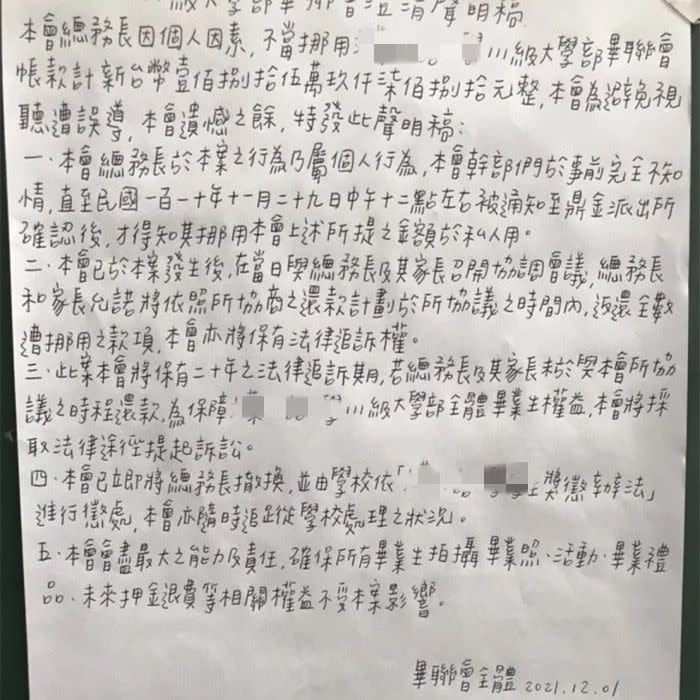 級大學部畢聯會澄清聲明稿
本會總務長因個人因素，不當挪用 川級大學部畢聯會
帳款計新台幣壹佰捌拾伍萬玖仟柒佰捌拾元整，本會為避免視
聽遭誤導，本會遺憾之餘，特發此聲明稿：
一、本會總務長於本案之行為乃屬個人行為，本會幹部們於事前完全不知
情，直至民國一百一十年十一月二十九日中午十二點左右被通知至鼎金派出所
確認後，才得知其挪用本會上述所提之金額於私人用。
二、本會已於本案發生後，在當日與總務長及其家長召開協調會議，總務長
和家長允諾將依照所協商之還款計劃於所協議之時間內，返還全數
遭挪用之款項，本會亦將保有法律追訴權。
三、此案本會將保有二十年之法律追訴期，若總務長及其家長未於與本會所協
議之時程還款，為保障 川級大學部全體畢業生權益，本會將採
取法律途徑提起訴訟。
四、本會已立即將總務長撤換，並由學校依「 獎懲辦法」
進行懲處，本會亦隨時追蹤學校處理之狀況。
五、本會會盡最大之能力及責任，確保所有畢業生拍攝畢業照、活動、畢業禮
品、未來押金退費等相關權益不受本案影響。
畢聯會全體 2021.12.01